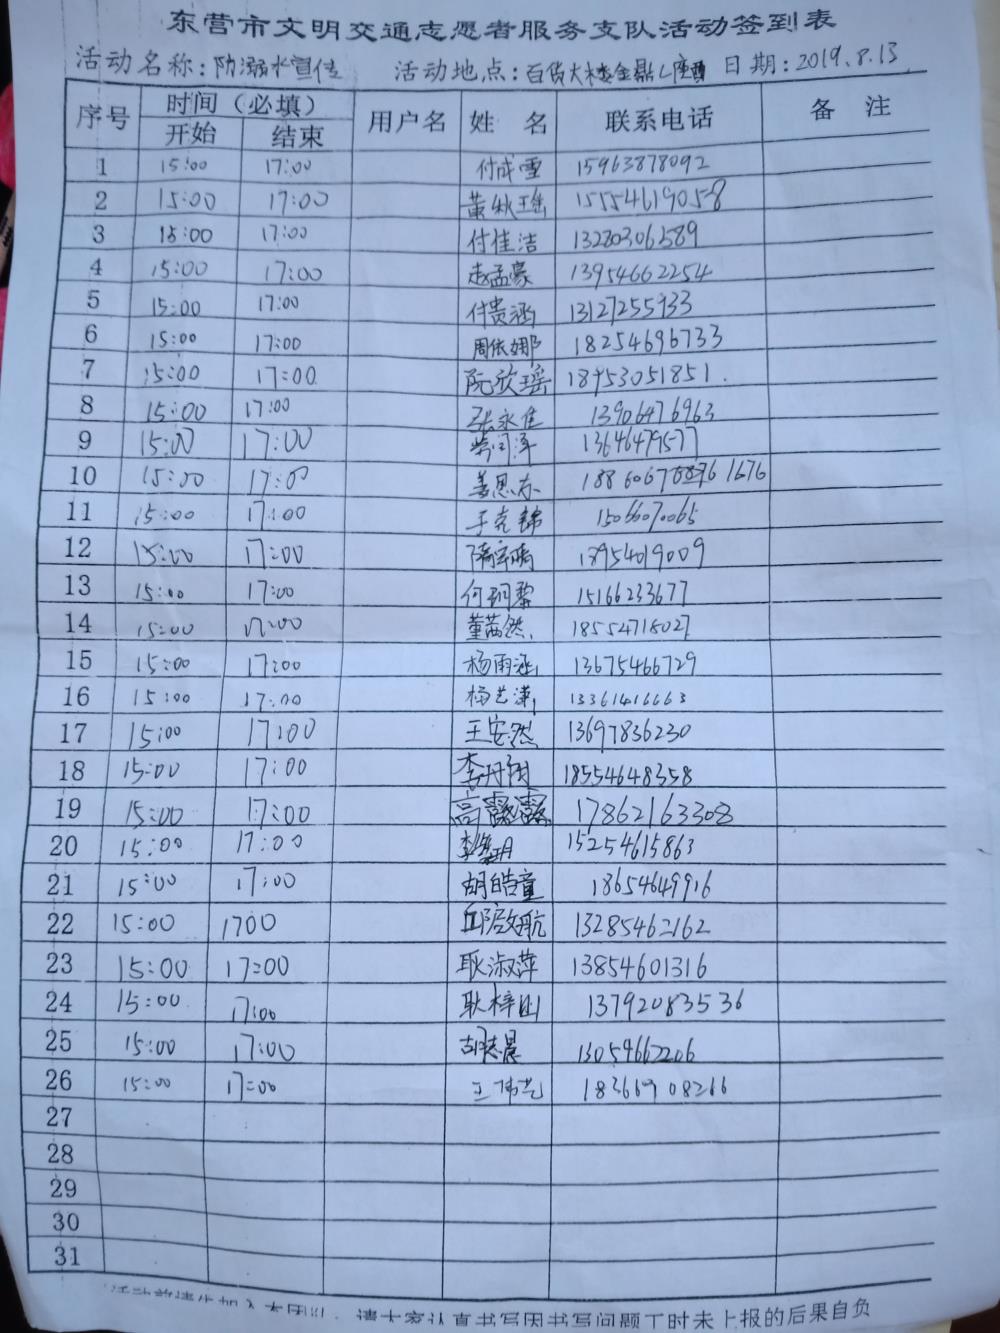 东营市文明交通志愿者服务支队活动签到表
活动名称：防溺水宣传 活动地点：百货大楼金鼎 日期：2019.8.13
序号 时间（必填） 用户名 姓名 联系电话 备注
开始 结束
1 15:00 17:00 付成雪 15963878092
2 15:00 17:00 黄秋瑶 15554619058
3 15:00 17:00 付佳洁 13280306589
4 15:00 17:00 赵孟豪 13954662254
5 15:00 17:00 付贵涵 13127255933
6 15:00 17:00 周依娜 18254696733
7 15:00 17:00 阮欣瑶 18953051851.
8 15:00 17:00 张永佳 13906476963
9 15:00 17:00 13646479577
10 15:00 17:00 姜思东
11 15:00 17:00 于克锦 15066070065
12 15:00 17:00 18954019009
13 15:00 17:00 何玥黎 15166233677
14 15:00 17:00 董茜然 18554718027
15 15:00 17:00 杨雨涵 13675466729
16 15:00 17:00 杨艺潇 13361416663
17 15:00 17:00 王安然 13697836230
18 15:00 17:00 李丹翔 18554648358
19 15:00 17:00 高露露 17862163308
20 15:00 17:00 15254615863
21 15:00 17:00 胡皓童 18654649916
22 15:00 1700 邱啟航 13285462162
23 15:00 17:00 耿淑萍 13854601316
24 15:00 17:00 耿梓 13792083536
25 15:00 17:00 13054662206
26 15:00 17:00 王伟艺 18366908266
27
28
29
30
31
活动前请先加入本团队，请大家认真书写因书写问题工时未上报的后果自负